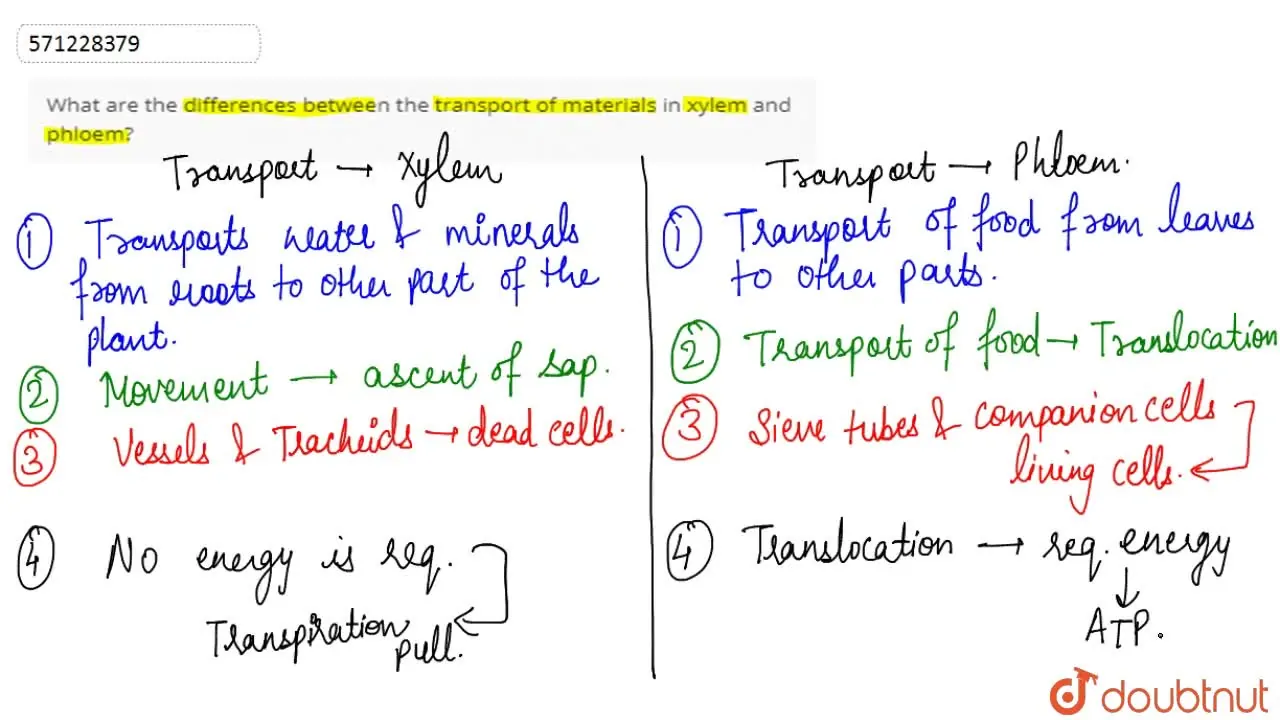 571228379
What are the differences between the transport of materials in xylem and
phloem?
Transport → Xylem
① Transports water & minerals
from roots to other part of the
plant.
② Movement → ascent of sap.
③ Vessels & Tracheids → dead cells.
④ No energy is req.
Transpiration
pull.
Transport → Phloem.
① Transport of food from leaves
to other parts.
② Transport of food → Translocation
③ Sieve tubes & companion cells
living cells.
④ Translocation → req. energy
↓
ATP.
doubtnut